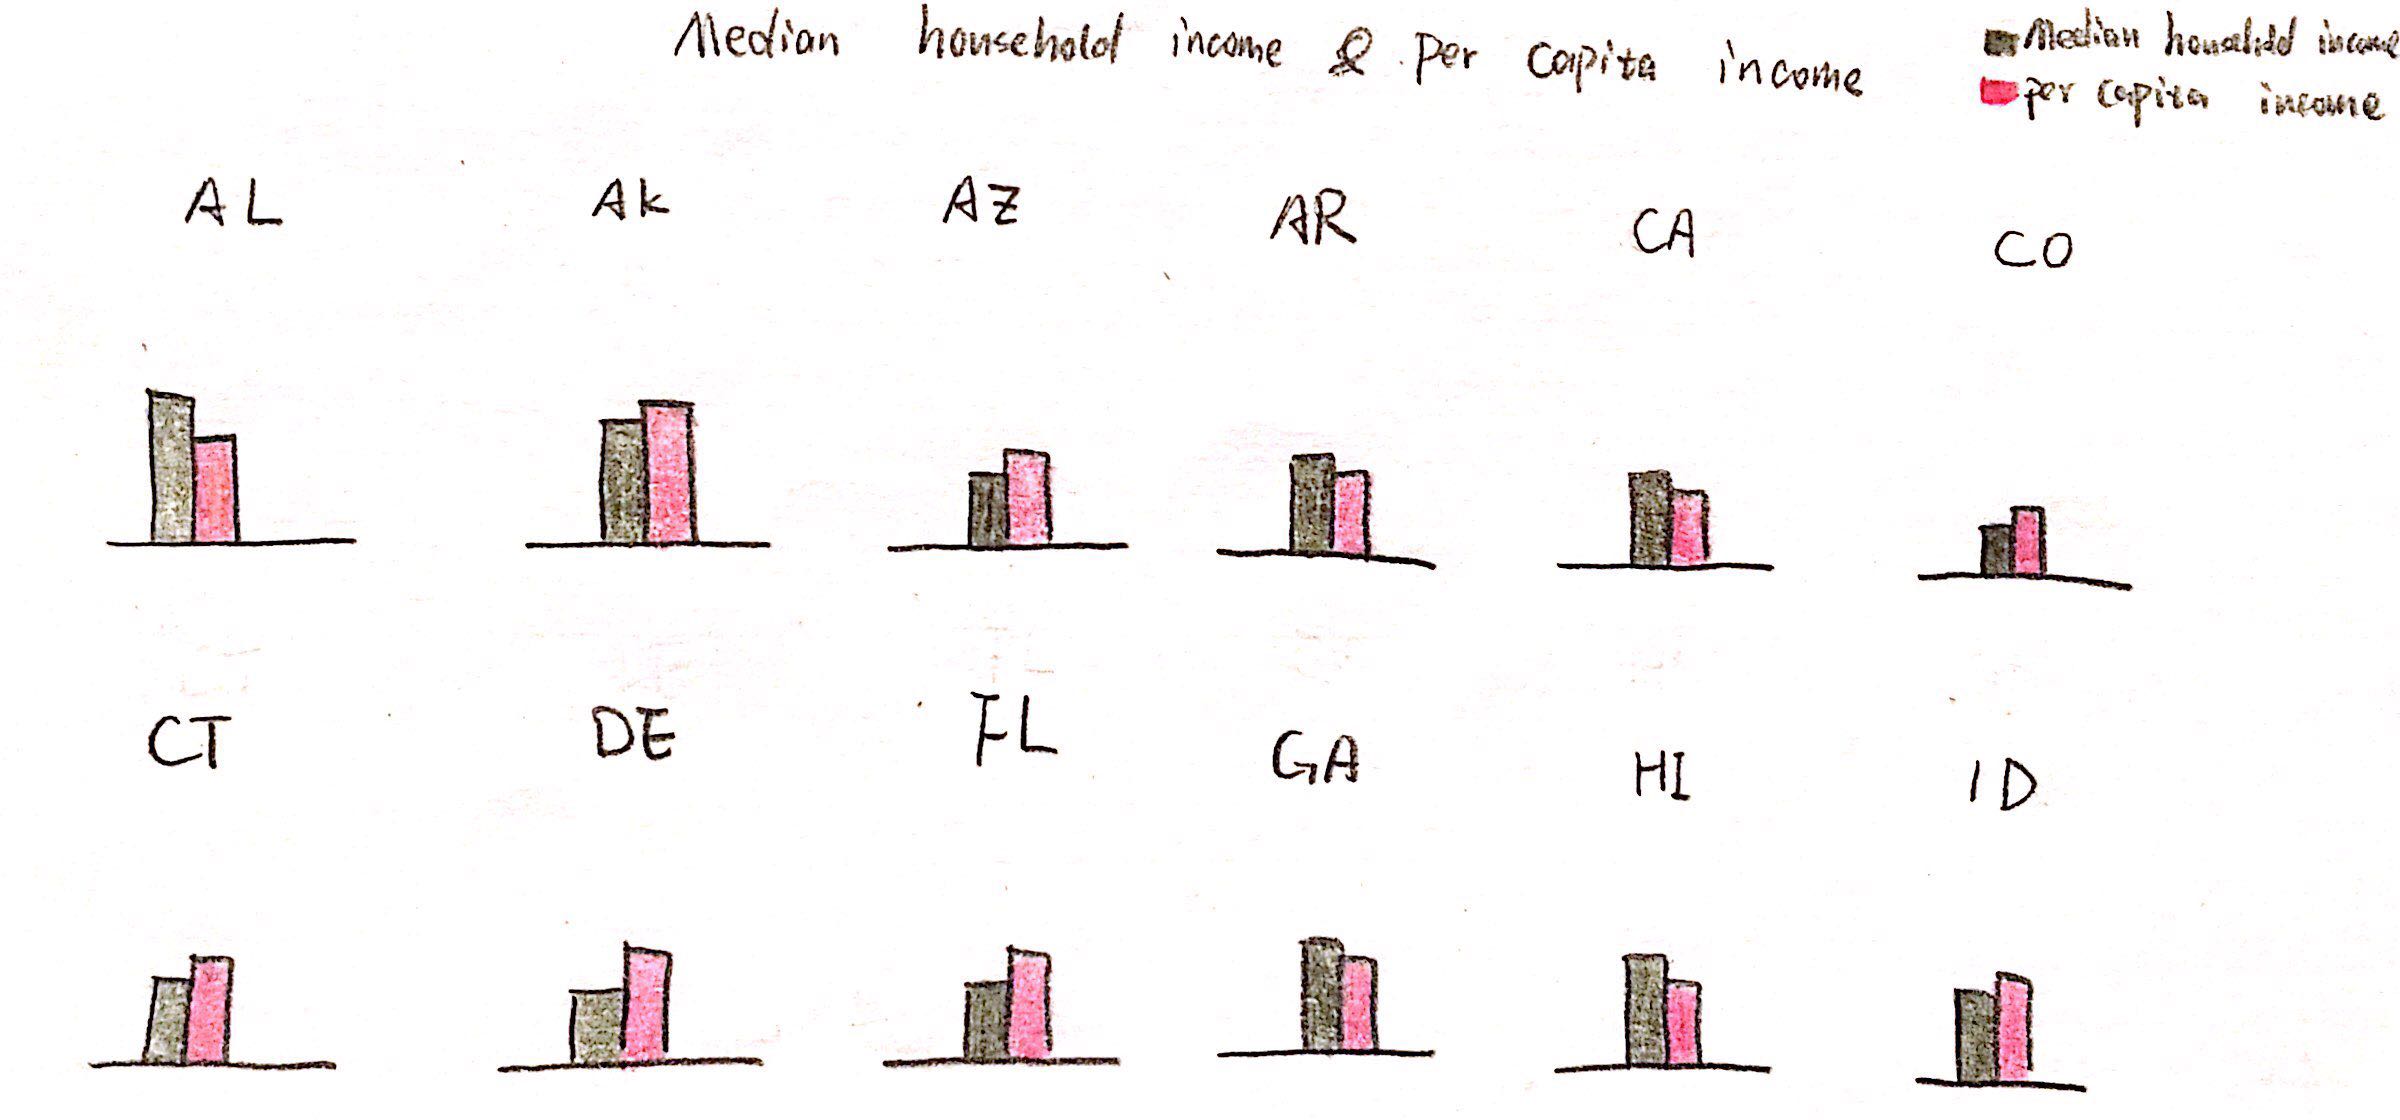 Median household income & per capita income
Median household income
per capita income
AL AK AZ AR CA CO
CT DE FL GA HI ID